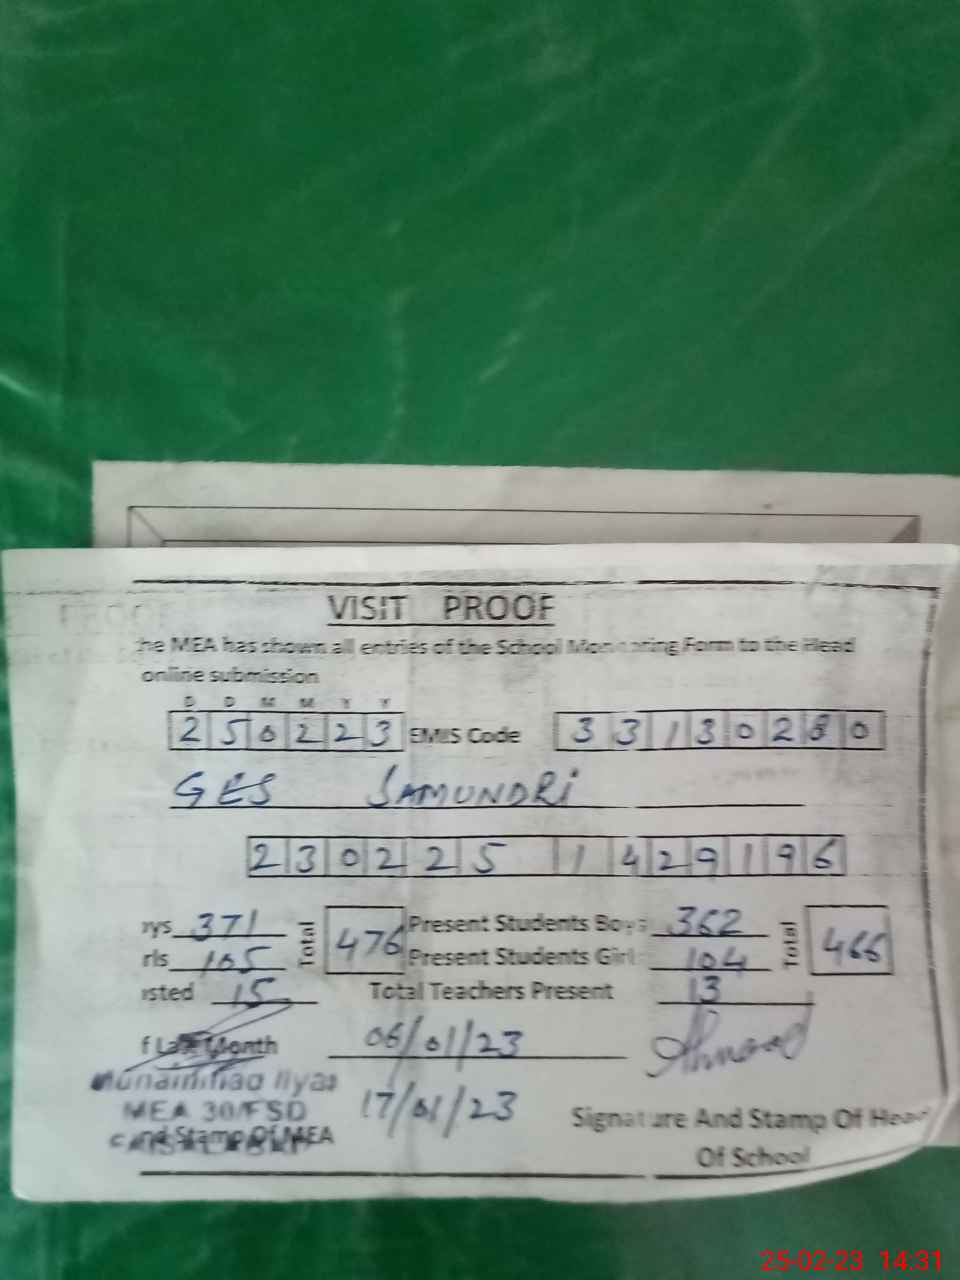 VISIT PROOF
he MEA has shown all entries of the School Monitoring Form to the Head
online submission
D D M M Y Y
250223 EMIS Code 33130280
GES SAMUNDRi
230225 1429196
ys 371 Total 476 Present Students Boys 362 Total 466
rls 105 Present Students Girl 104
sted 15 Total Teachers Present 13
f Last Month 06/01/23 Ahmad
Muhammad Ilyas
MEA 30/FSD 17/01/23 Signature And Stamp Of Head
and Stamp Of MEA Of School
25-02-23 14:31